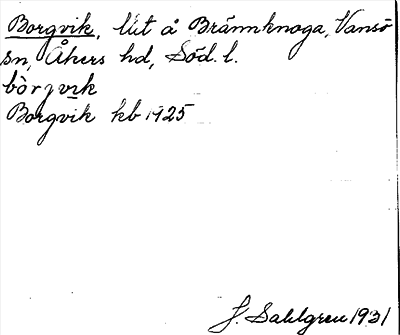 Borgvik, lht å Brännknoga, Vansö
sn, Åkers hd, Söd. l.
bòrjvik
Borgvik kb 1925
J. Sahlgren 1931